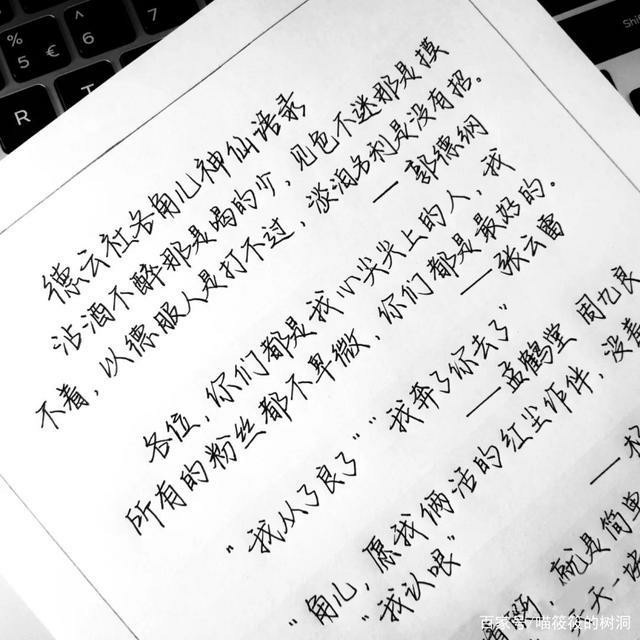 德云社各角儿神仙语录
沾酒不醉那是喝的少，见色不迷那是摸
不着，以德服人是打不过，淡泊名利是没有招。
—郭德纲
各位，你们都是我心尖尖上的人，我
所有的粉丝都不卑微，你们都是最好的。
—张云雷
“我从了良了”“我奔了你去了”
—孟鹤堂 周九良
“角儿，愿我俩活的红尘作伴，没着
“我认哏”
就是简单
天一
% 5 €
^ 6
7
R
T
百家号·喵筱筱的树洞